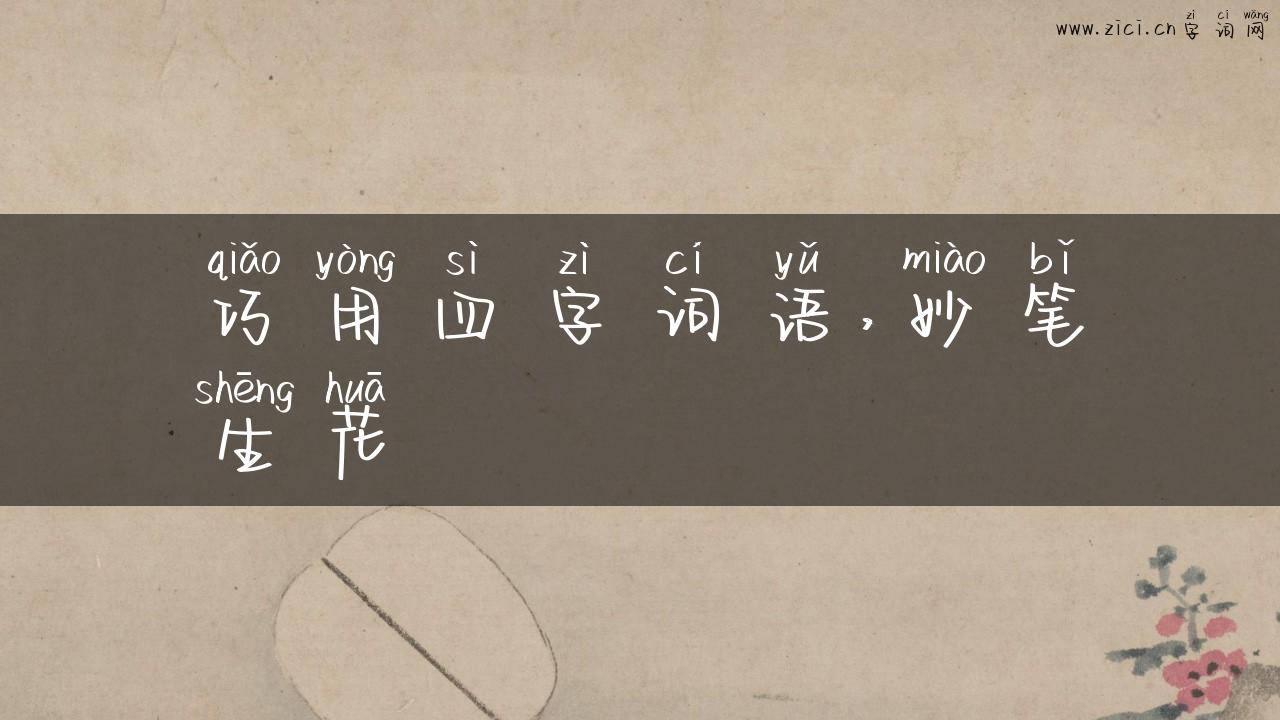 zì cí wǎng
www.zici.cn字词网
qiǎo yòng sì zì cí yǔ miào bǐ
巧用四字词语，妙笔
shēng huā
生花